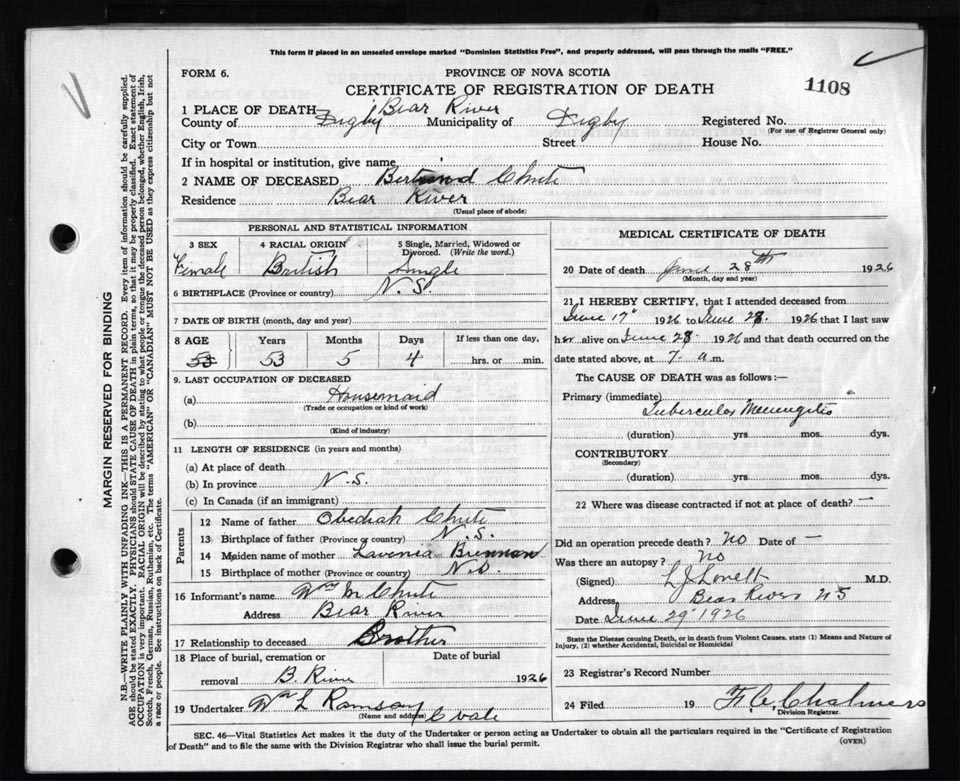 This form if placed in an unsealed envelope marked "Dominion Statistics Free", and properly addressed, will pass through the mails "FREE."
FORM 6.
PROVINCE OF NOVA SCOTIA
CERTIFICATE OF REGISTRATION OF DEATH
1108
1 PLACE OF DEATH Bear River
County of Digby Municipality of Digby Registered No.
(For use of Registrar General only)
City or Town Street House No.
If in hospital or institution, give name
2 NAME OF DECEASED Chute
Residence Bear River
(Usual place of abode)
PERSONAL AND STATISTICAL INFORMATION
3 SEX 4 RACIAL ORIGIN 5 Single, Married, Widowed or Divorced. (Write the word.)
Female British Single
6 BIRTHPLACE (Province or country) N.S.
7 DATE OF BIRTH (month, day and year)
8 AGE Years Months Days If less than one day,
53 53 5 4 hrs. or min.
9. LAST OCCUPATION OF DECEASED
(a) Housemaid
(Trade or occupation or kind of work)
(b)
(Kind of industry)
11 LENGTH OF RESIDENCE (in years and months)
(a) At place of death
(b) In province N.S.
(c) In Canada (if an immigrant)
Parents
12 Name of father Obediah Chute
13 Birthplace of father (Province or country) N.S.
14 Maiden name of mother Lavenia Brennan
15 Birthplace of mother (Province or country) N.S.
16 Informant's name Wm M Chute
Address Bear River
17 Relationship to deceased Brother
18 Place of burial, cremation or removal B. River
Date of burial 1926
19 Undertaker Wm L Ramsay
(Name and address)
MEDICAL CERTIFICATE OF DEATH
20 Date of death June 28th 1926
(Month, day and year)
21 I HEREBY CERTIFY, that I attended deceased from
June 17" 1926 to June 28. 1926 that I last saw
her alive on June 28 1926 and that death occurred on the
date stated above, at 7 a.m.
The CAUSE OF DEATH was as follows:—
Primary (immediate) Tubercular Meningitis
(duration) yrs. mos. dys.
CONTRIBUTORY
(Secondary)
(duration) yrs. mos. dys.
22 Where was disease contracted if not at place of death? —
Did an operation precede death? No Date of —
Was there an autopsy? no
(Signed) L J Lovett M.D.
Address Bear River N S
Date June 29" 1926
State the Disease causing Death, or in death from Violent Causes, state (1) Means and Nature of
Injury, (2) whether Accidental, Suicidal or Homicidal
23 Registrar's Record Number
24 Filed 19 Chalmers
Division Registrar.
SEC. 46—Vital Statistics Act makes it the duty of the Undertaker or person acting as Undertaker to obtain all the particulars required in the "Certificate of Registration
of Death" and to file the same with the Division Registrar who shall issue the burial permit.
(OVER)
MARGIN RESERVED FOR BINDING
N.B.—WRITE PLAINLY WITH UNFADING INK—THIS IS A PERMANENT RECORD. Every item of information should be carefully supplied.
AGE should be stated EXACTLY. PHYSICIANS should STATE CAUSE OF DEATH in plain terms, so that it may be properly classified. Exact statement of
OCCUPATION is very important. RACIAL ORIGIN will be described by stating to what people or tongue the deceased person belonged, whether English, Irish,
Scotch, French, German, Russian, Ruthenian, etc. The terms "AMERICAN" OR "CANADIAN" MUST NOT BE USED as they express citizenship but not
a race or people. See instructions on back of Certificate.